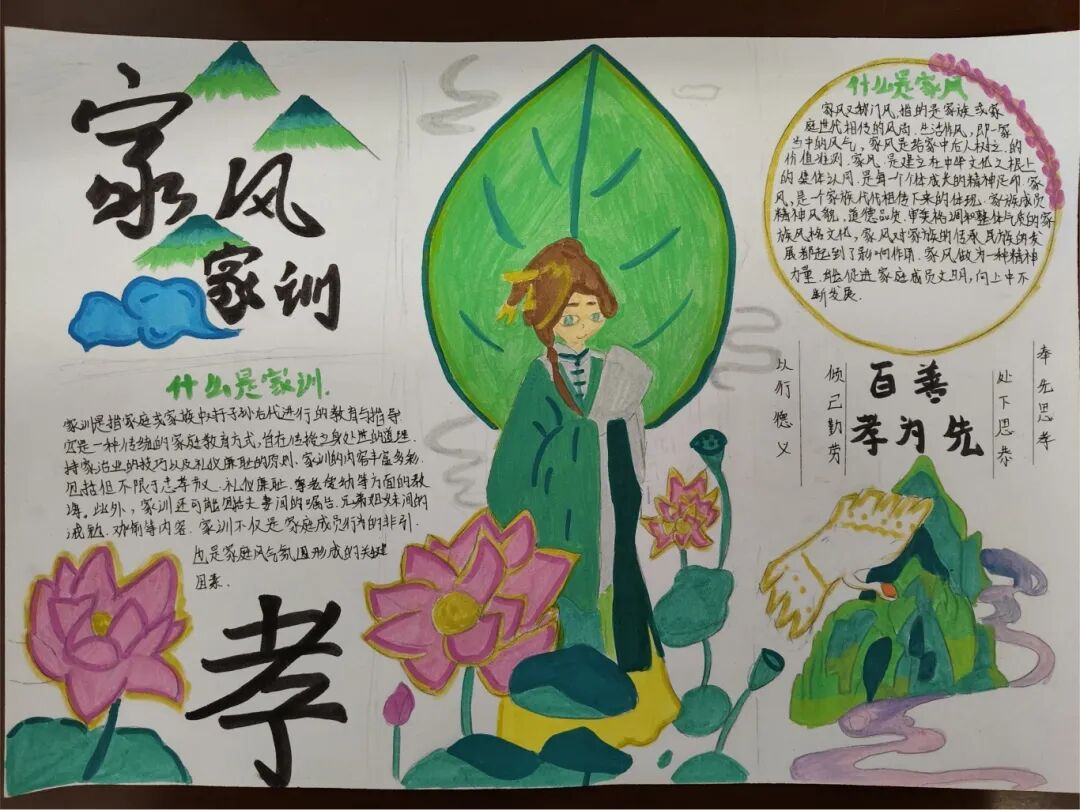 家风
家训
什么是家训.
家训是指家庭或家族中对子孙后代进行的教育与指导
它是一种传统的家庭教育方式,旨在传授立身处世的道理.
持家治业的技巧以及礼仪廉耻的原则.家训的内容丰富多彩.
包括但不限于忠孝节义.礼仪廉耻.尊老爱幼等方面的教
诲。此外,家训还可能包括夫妻间的嘱告.兄弟姐妹间的
诫勉.劝制等内容.家训不仅是家庭成员行为的准引.
也是家庭风气氛围形成的关键
因素.
孝
什么是家风
家风又称门风,指的是家族或家
庭世代相传的风尚.生活作风,即一家
当中的风气,家风是给家中后人树立.的
价值准则.家风.是建立在中华文化之根上
的集体认同.是每一个个体成长的精神足印.家
风,是一个家族代代相传下来的体现.家族成员
精神风貌.道德品质.审美格调和整体气质的家
族风格文化,家风对家族的传承.民族的发
展都起到了影响作用.家风做为一种精神
力量.能促进家庭成员文明,向上中不
断发展.
奉先思孝
处下思恭
百善
孝为先
倾己勤劳
以行德义